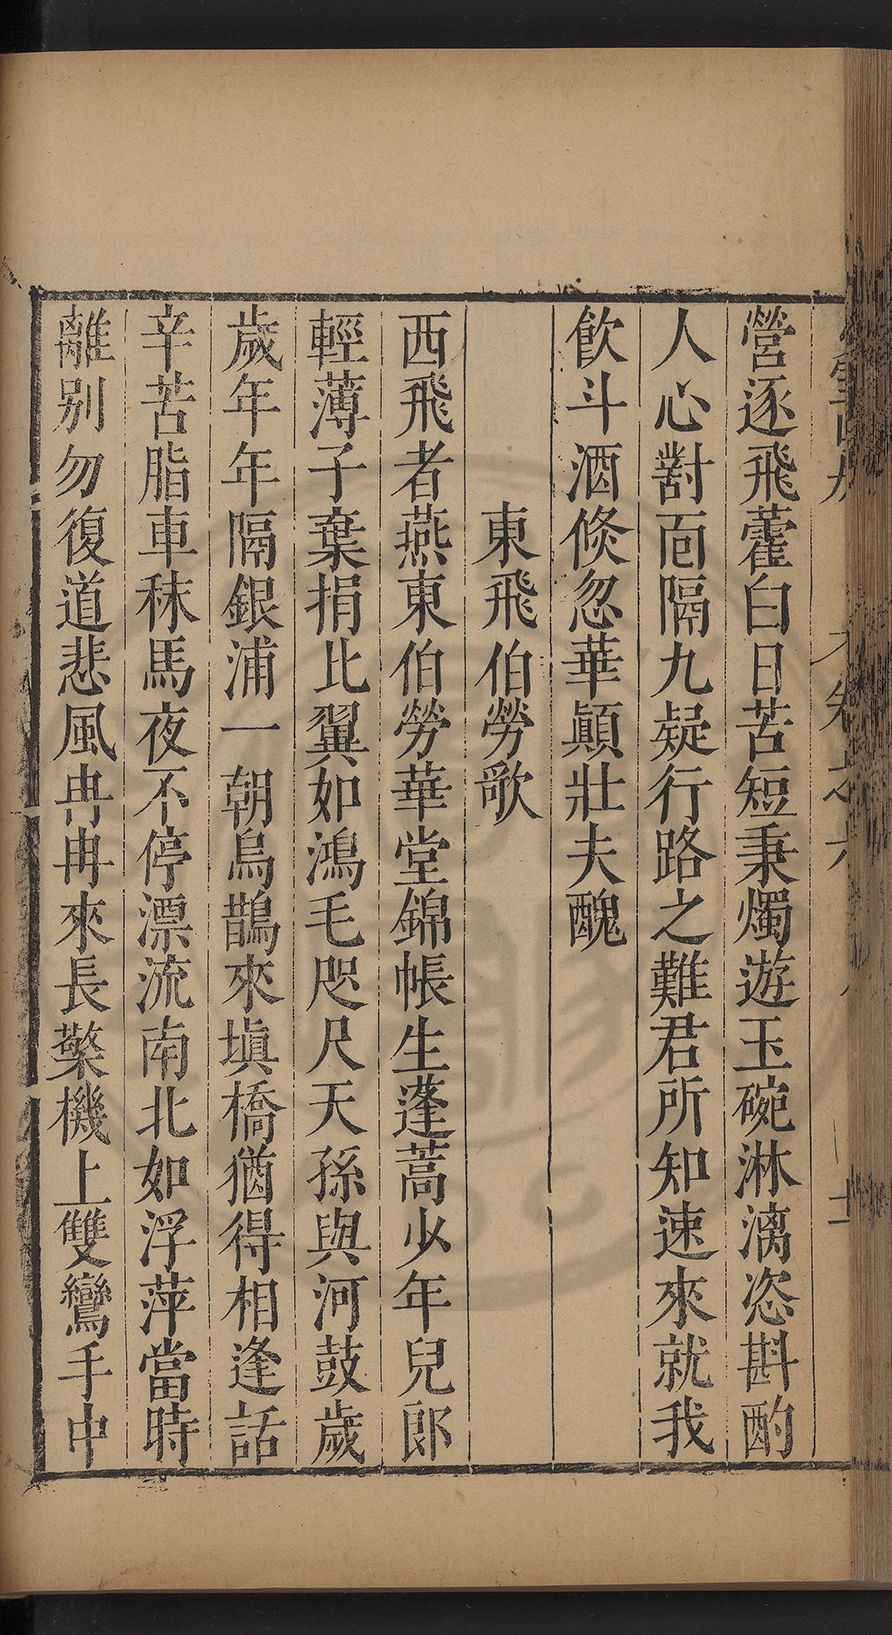 營逐飛藿白日苦短秉燭遊玉碗淋漓恣斟酌
人心對面隔九疑行路之難君所知速來就我
飲斗酒倐忽華顚壯夫醜
東飛伯勞歌
西飛者燕東伯勞華堂錦帳生蓬蒿少年兒郎
輕薄子棄捐比翼如鴻毛咫尺天孫與河鼓歲
歲年年隔銀浦一朝烏鵲來塡橋猶得相逢話
辛苦脂車秣馬夜不停漂流南北如浮萍當時
離別勿復道悲風冉冉來長檠機上雙鸞手中